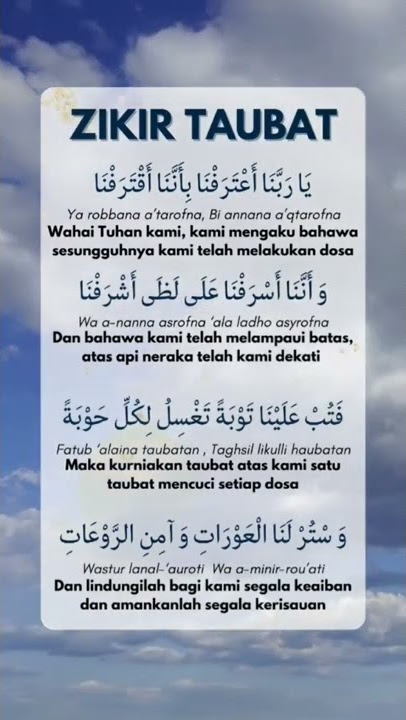 ZIKIR TAUBAT
يَا رَبَّنَا أَعْتَرَفْنَا بِأَنَّنَا أَقْتَرَفْنَا
Ya robbana a'tarofna, Bi annana a'qtarofna
Wahai Tuhan kami, kami mengaku bahawa
sesungguhnya kami telah melakukan dosa
وَ أَنَّنَا أَسْرَفْنَا عَلَى لَظَى أَشْرَفْنَا
Wa a-nanna asrofna 'ala ladho asyrofna
Dan bahawa kami telah melampaui batas,
atas api neraka telah kami dekati
فَتُبْ عَلَيْنَا تَوْبَةً تَغْسِلُ لِكُلِّ حَوْبَةً
Fatub 'alaina taubatan , Taghsil likulli haubatan
Maka kurniakan taubat atas kami satu
taubat mencuci setiap dosa
وَ سْتُرْ لَنَا الْعَوْرَاتِ وَ آمِنِ الرَّوْعَاتِ
Wastur lanal-'auroti Wa a-minir-rou'ati
Dan lindungilah bagi kami segala keaiban
dan amankanlah segala kerisauan